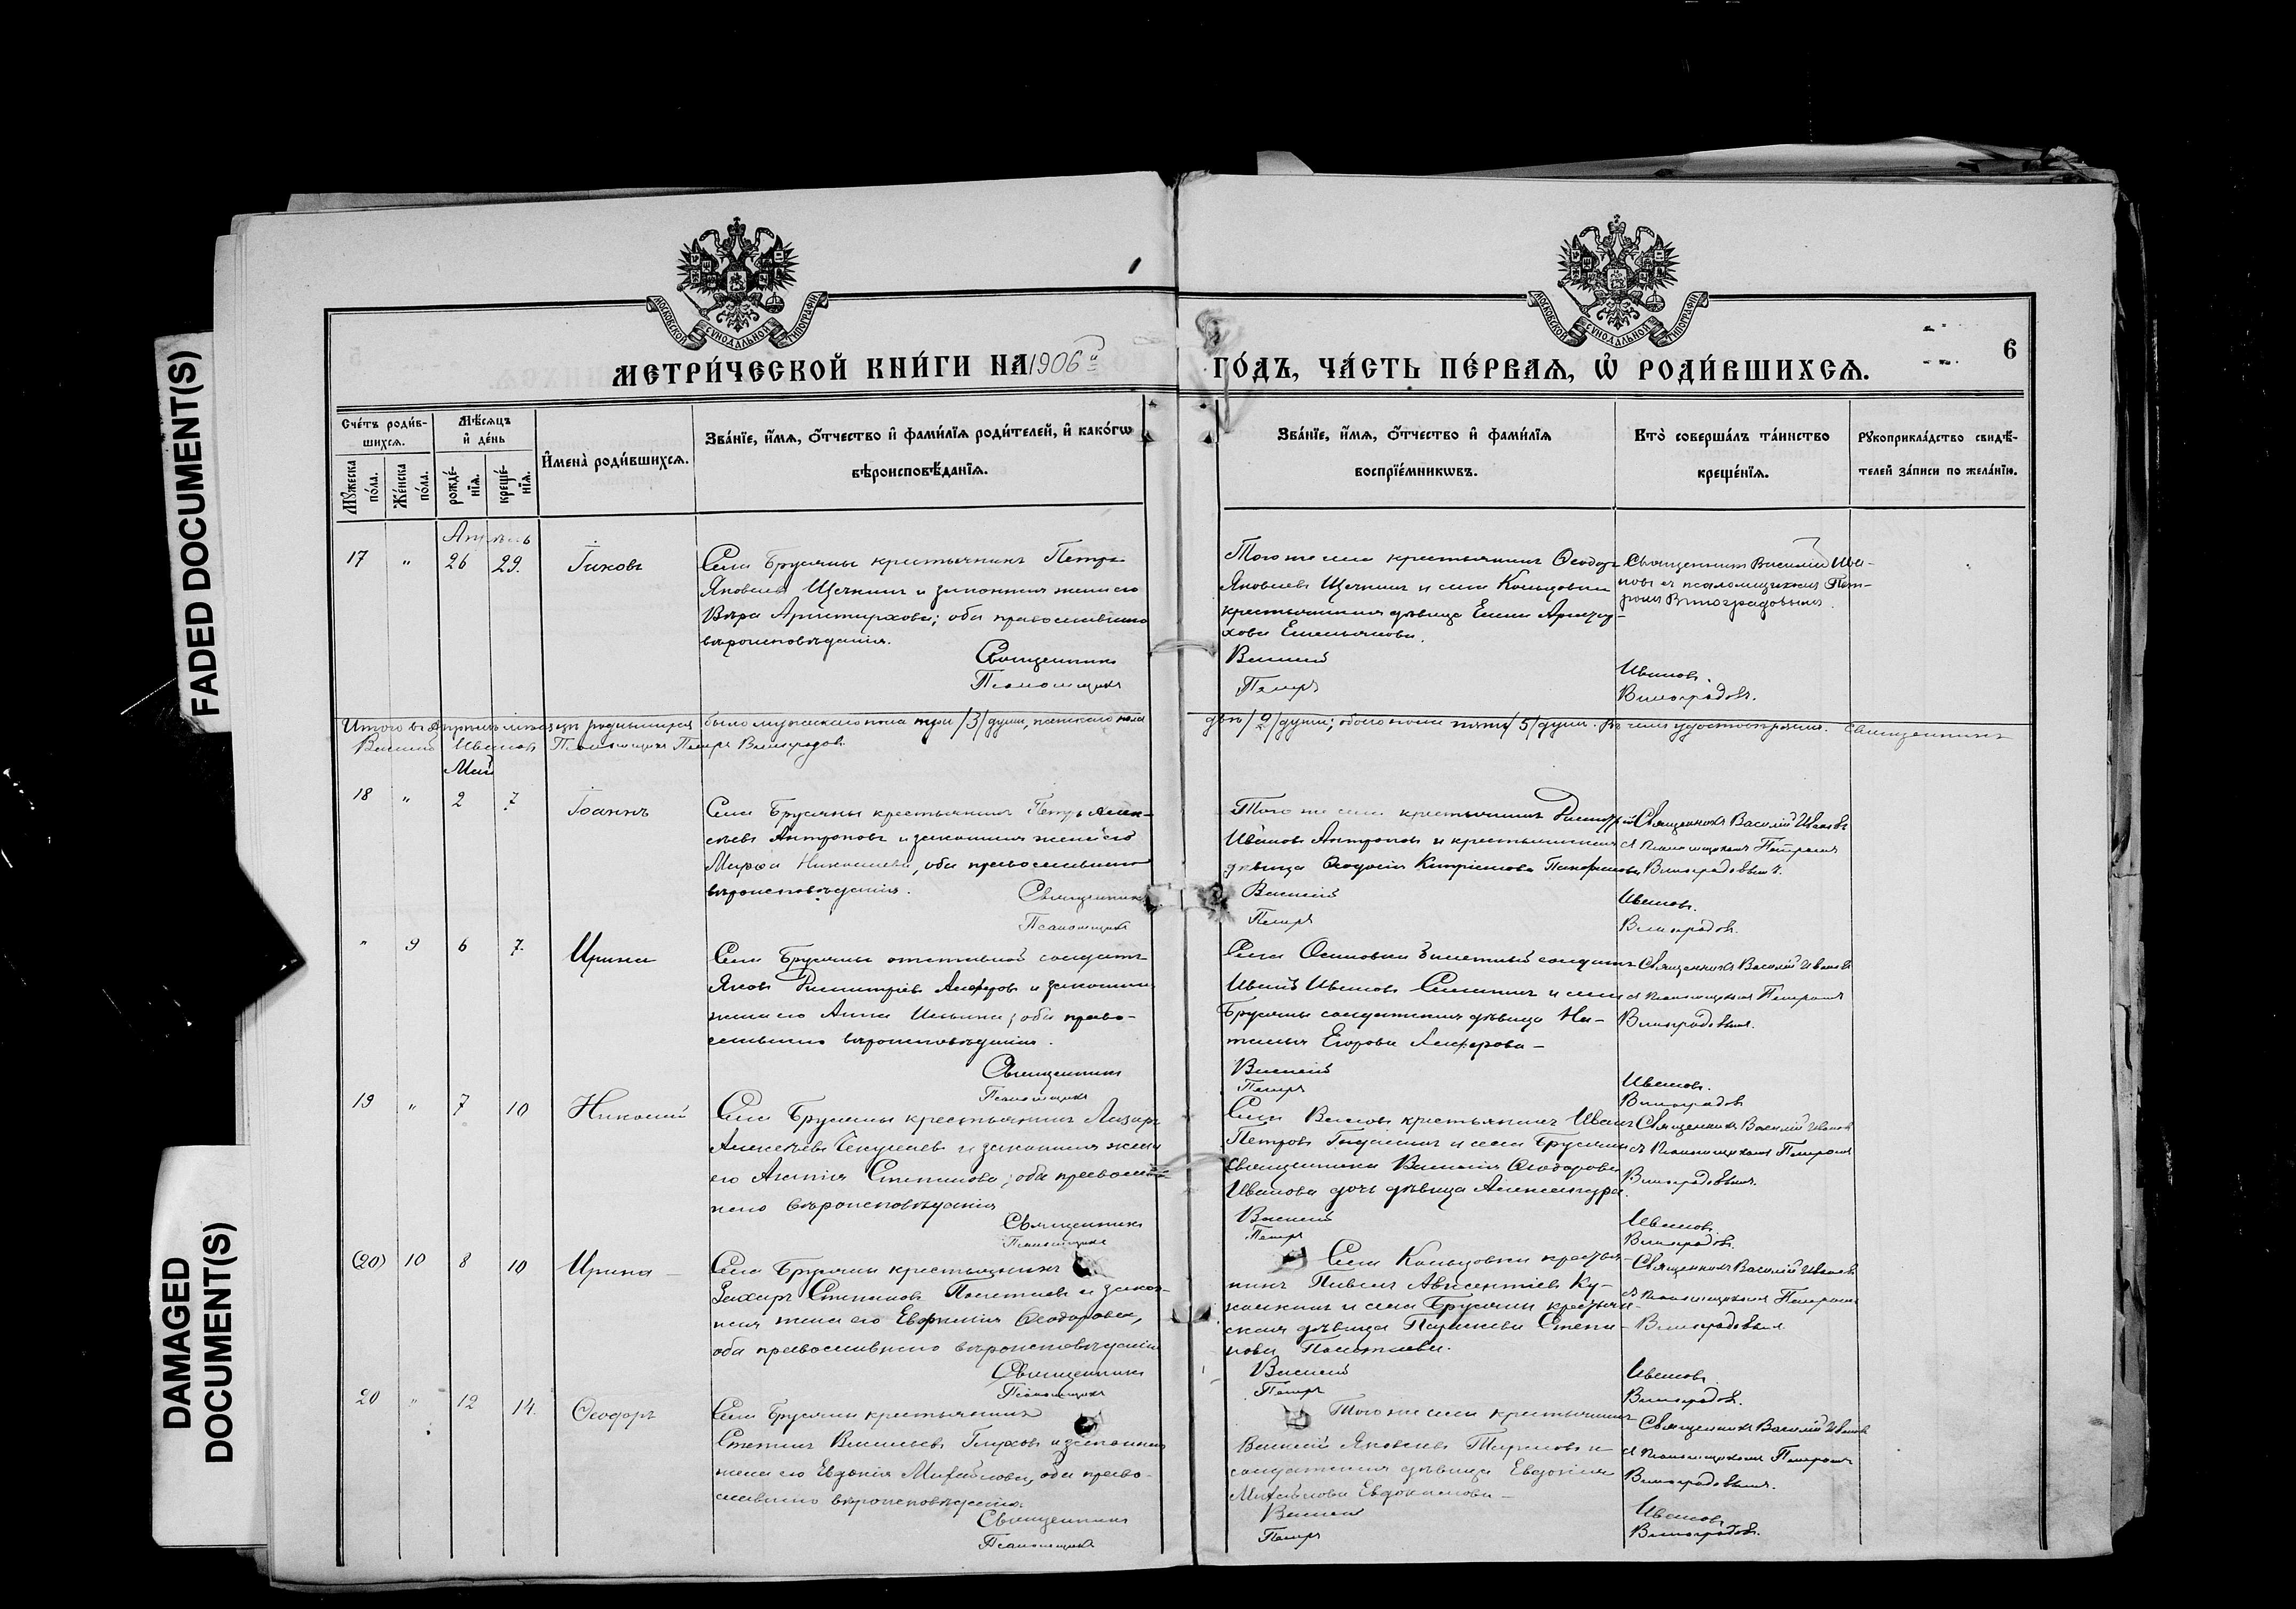 FADED DOCUMENT(S)
DAMAGED
DOCUMENT(S)
МОСКОВСКОЙ СѴНОДАЛЬНОЙ ТИПОГРАФІИ
МОСКОВСКОЙ СѴНОДАЛЬНОЙ ТИПОГРАФІИ
МЕТРИ́ЧЕСКОЙ КНИ́ГИ НА 1906й
ГО́ДЪ, ЧА́СТЬ ПЕ́РВАѦ, Ѡ҆ РОДИ́ВШИХСѦ.
6
Сче́тъ роди́в-
шихсѧ.
Мꙋ́жеска по́ла.
Же́нска по́ла.
Мѣ́сѧцъ
и҆ де́нь
рожде́-
нїѧ.
креще́-
нїѧ.
И҆мена̀ роди́вшихсѧ.
Зва́нїе, и҆́мѧ, ѻ҆́тчество и҆ фами́лїѧ роди́телей, и҆ како́гѡ
вѣроисповѣ́данїѧ.
Зва́нїе, и҆́мѧ, ѻ҆́тчество и҆ фами́лїѧ
воспрїе́мникѡвъ.
Кто̀ соверша́лъ та́инство
креще́нїѧ.
Рꙋкоприкла́дство свидѣ́-
телей за́писи по жела́нїю.
Апрѣль
17 " 26 29. Іаковъ
Села Брусяны крестьянинъ Петръ
Яковлевъ Щечкинъ и законная жена его
Вѣра Аристархова; оба православнаго
вѣроисповѣданія.
Священникъ
Псаломщикъ
Того же села крестьянинъ Ѳеодоръ
Яковлевъ Щечкинъ и села Кольцовки
крестьянская дѣвица Елена
Емельянова.
Василій
Петръ
Священникъ Василій Ива-
новъ съ псаломщикомъ Пет-
ромъ Виноградовымъ.
Ивановъ.
Виноградовъ.
Итого въ Апрѣлѣ мѣсяцѣ родившихся было мужескаго пола три /3/ души, женскаго пола
двѣ /2/ души; обоего пола пять /5/ душъ. Священникъ
Василій Ивановъ Псаломщикъ Петръ Виноградовъ.
Май
18 " 2 7. Іоаннъ
Села Брусяны крестьянинъ Петръ Алек-
сѣевъ Антроповъ и законная жена его
Марѳа Николаева, оба православнаго
вѣроисповѣданія.
Священникъ
Псаломщикъ
Того же села крестьянинъ Димитрій
Ивановъ Антроповъ и крестьянская
дѣвица Ѳеодосія
Василій
Петръ
Священникъ Василій Ивановъ
съ псаломщикомъ Петромъ
Виноградовымъ.
Ивановъ.
Виноградовъ.
" 9 6 7. Ирина
Села Брусяны отставной солдатъ
Яковъ Димитріевъ Алферовъ и законная
жена его Анна Ильина; оба право-
славнаго вѣроисповѣданія.
Священникъ
Псаломщикъ
Села Осиновки билетный солдатъ
Иванъ Ивановъ и села
Брусяны солдатская дѣвица На-
талья Егорова Алферова
Василій
Петръ
Священникъ Василій Ивановъ
съ псаломщикомъ Петромъ
Виноградовымъ.
Ивановъ.
Виноградовъ
19 " 7 10 Николай
Села Брусяны крестьянинъ Лазарь
Алексѣевъ и законная жена
его Степанова; оба православ-
наго вѣроисповѣданія
Священникъ
Псаломщикъ
Села крестьянинъ Иванъ
Петровъ и села Брусяны
священника Василія Ѳеодорова
Иванова дочь дѣвица Александра.
Василій
Петръ
Священникъ Василій Ивановъ
съ псаломщикомъ Петромъ
Виноградовымъ.
Ивановъ.
Виноградовъ.
(20) 10 8 10 Ирина
Села Брусяны крестьянинъ
Захаръ Степановъ Полетаевъ и закон-
ная жена его Евфимія Ѳеодорова,
оба православнаго вѣроисповѣданія
Священникъ
Псаломщикъ
Села Кольцовки крестья-
нинъ Павелъ Авксентіевъ Ку-
и села Брусяны крестьян-
ская дѣвица Параскева Степа-
нова Полетаева.
Василій
Петръ
Священникъ Василій Ивановъ
съ псаломщикомъ Петромъ
Виноградовымъ
Ивановъ.
Виноградовъ.
20 " 12 14. Ѳеодоръ
Села Брусяны крестьянинъ
Степанъ Васильевъ Глуховъ и законная
жена его Евдокія Михайлова, оба право-
славнаго вѣроисповѣданія.
Священникъ
Псаломщикъ
Того же села крестьянинъ
Василій Яковлевъ и
солдатская дѣвица Евдокія
Михайлова Евдокимова
Василій
Петръ
Священникъ Василій Ивановъ
съ псаломщикомъ Петромъ
Виноградовымъ.
Ивановъ.
Виноградовъ.